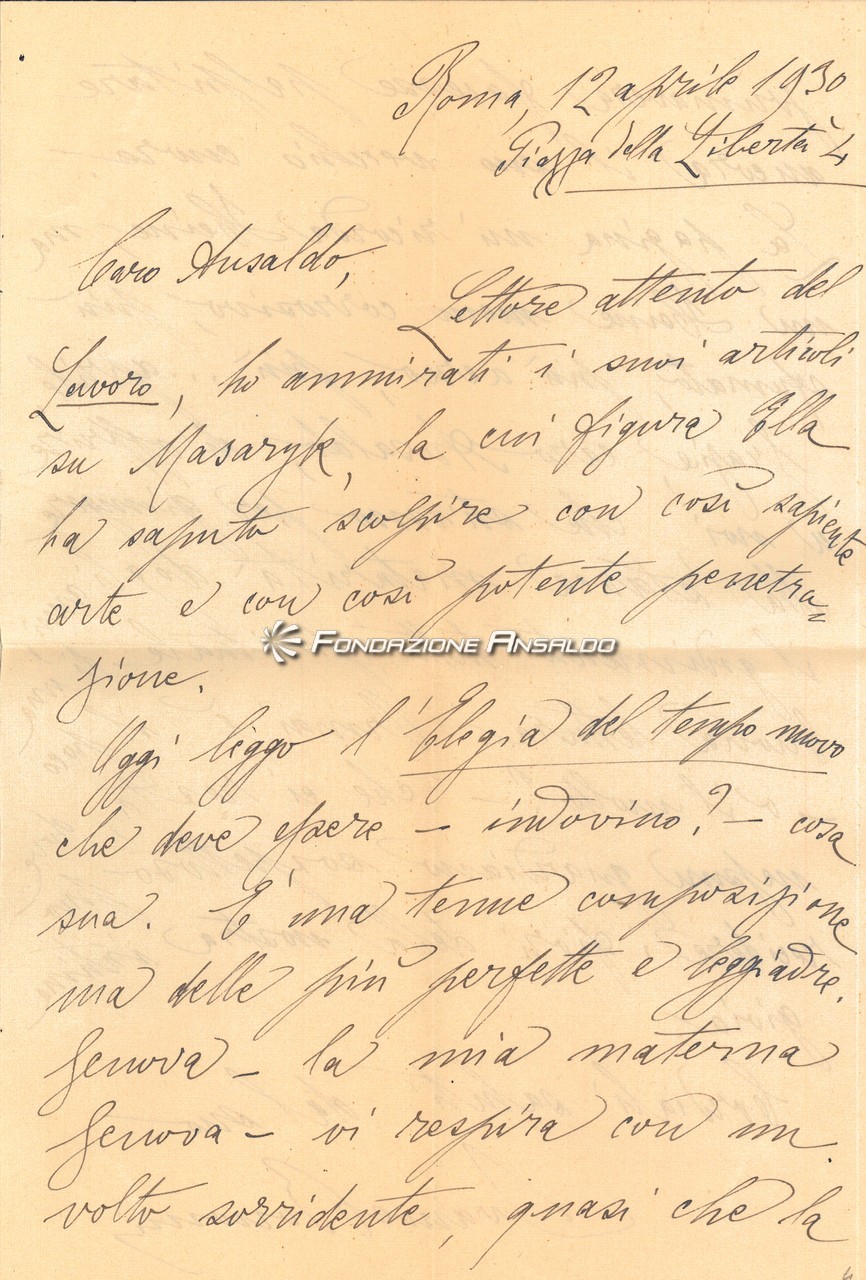 Roma, 12 aprile 1930
Piazza della Libertà 4
Caro Ansaldo,
Lettore attento del
Lavoro, ho ammirati i suoi articoli
su Masaryk, la cui figura Ella
ha saputo scolpire con così sapiente
arte e con così potente penetra=
zione.
FONDAZIONE ANSALDO
Oggi leggo l'Elegia del tempo nuovo
che deve essere – indovino? – cosa
sua. È una tenue composizione
ma delle più perfette e leggiadre.
Genova – la mia materna
Genova – vi respira con un
volto sorridente, quasi che la